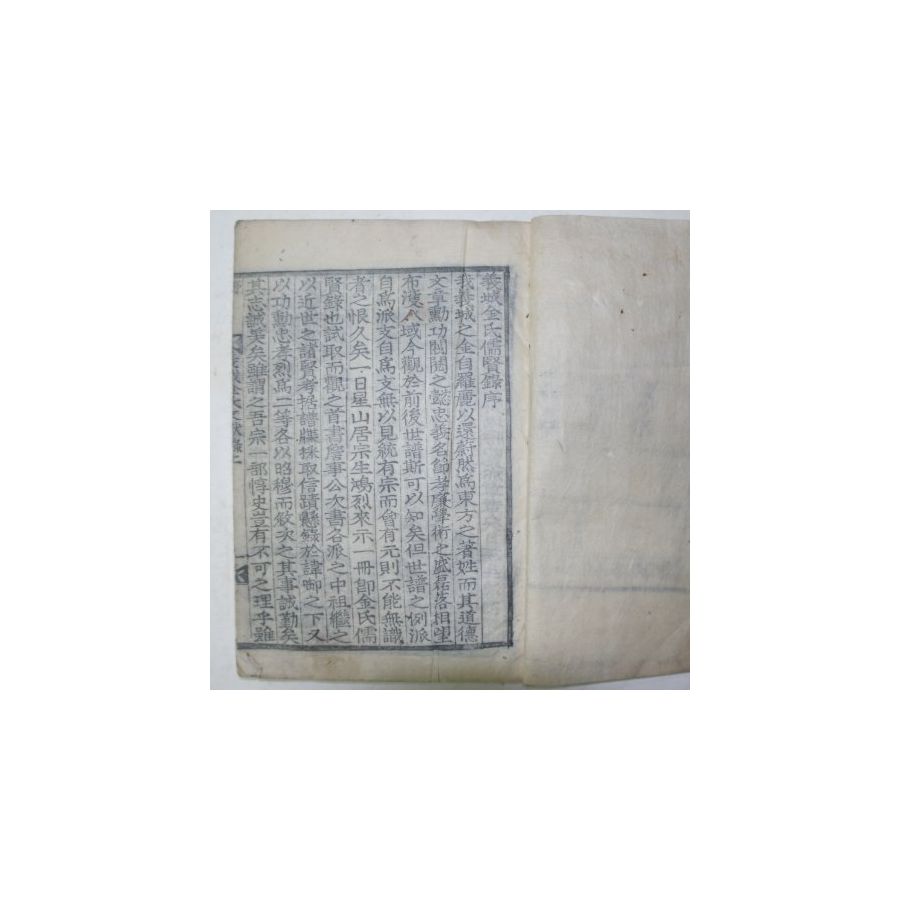 義城金氏儒賢錄序
我義城之金自羅麗以還蔚然爲東方之著姓而其道德
文章勳功閥閱之懿忠義名節孝廉學術之盛磊落相望
布濩人域今觀於前後世譜斯可以知矣但世譜之例派
自爲派支自爲支無以見統有宗而會有元則不能無識
者之恨久矣一日星山居宗生鴻烈來示一冊卽金氏儒
賢錄也試取而觀之首書詹事公次書各派之中祖繼之
以近世之諸賢考据譜牒採取信蹟懸錄於諱啣之下又
以功勳忠孝烈爲二等各以昭穆而敘次之其事誠勤矣
其志誠美矣雖謂之吾宗一部惇史豈有不可之理乎雖